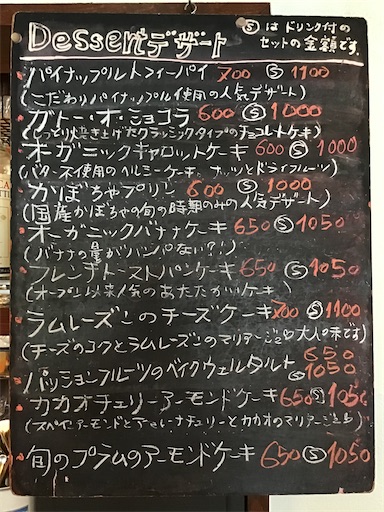 Dessertデザート
Ⓢはドリンク付の
セットの金額です。
パイナップルトフィーパイ 700 Ⓢ 1100
(こだわりパイナップル使用の人気デザート)
ガトー・オ・ショコラ 600 Ⓢ 1000
(しっとり焼き上げたクラシックタイプのチョコレートケーキ)
オーガニックキャロットケーキ 600 Ⓢ 1000
(バター不使用のヘルシーケーキ。ナッツとドライフルーツ)
かぼちゃプリン 600 Ⓢ 1000
(国産かぼちゃの旬の時期のみの人気デザート)
オーガニックバナナケーキ 650 Ⓢ 1050
(バナナの量がハンパない?!)
フレンチトーストパンケーキ 650 Ⓢ 1050
(オープン以来人気のあたたかいケーキ)
ラムレーズンのチーズケーキ 700 Ⓢ 1100
(チーズのコクとラムレーズンのマリアージュ♡大人の味です)
パッションフルーツのベイクウェルタルト 650 Ⓢ 1050
カカオチェリーアーモンドケーキ 650 Ⓢ 1050
(スペインアーモンドとチェリーとカカオのマリアージュ)
旬のプラムのアーモンドケーキ 650 Ⓢ 1050